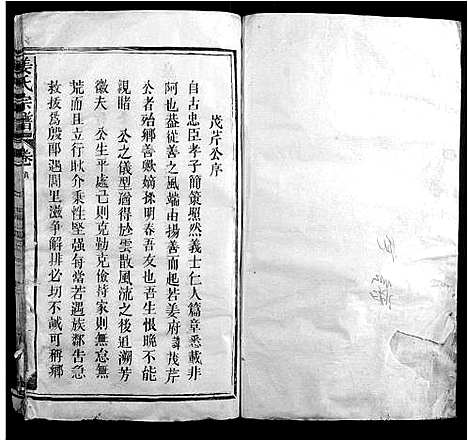 姜氏宗譜
卷首
茂芹公序
自古忠臣孝子簡策照然義士仁人篇章悉載非
阿也葢從善之風端由揚善而起若姜府諱茂芹
公者殆鄉善歟嫡孫明春吾友也吾生恨晚不能
親睹 公之儀型迺得於雲散風流之後追溯芳
徽夫 公生平處己則克勤克儉持家則無怠無
荒而且立行耿介秉性堅强每當若遇族鄰告急
救援爲殷即遇閭里滋爭解排必切不誠可稱鄉